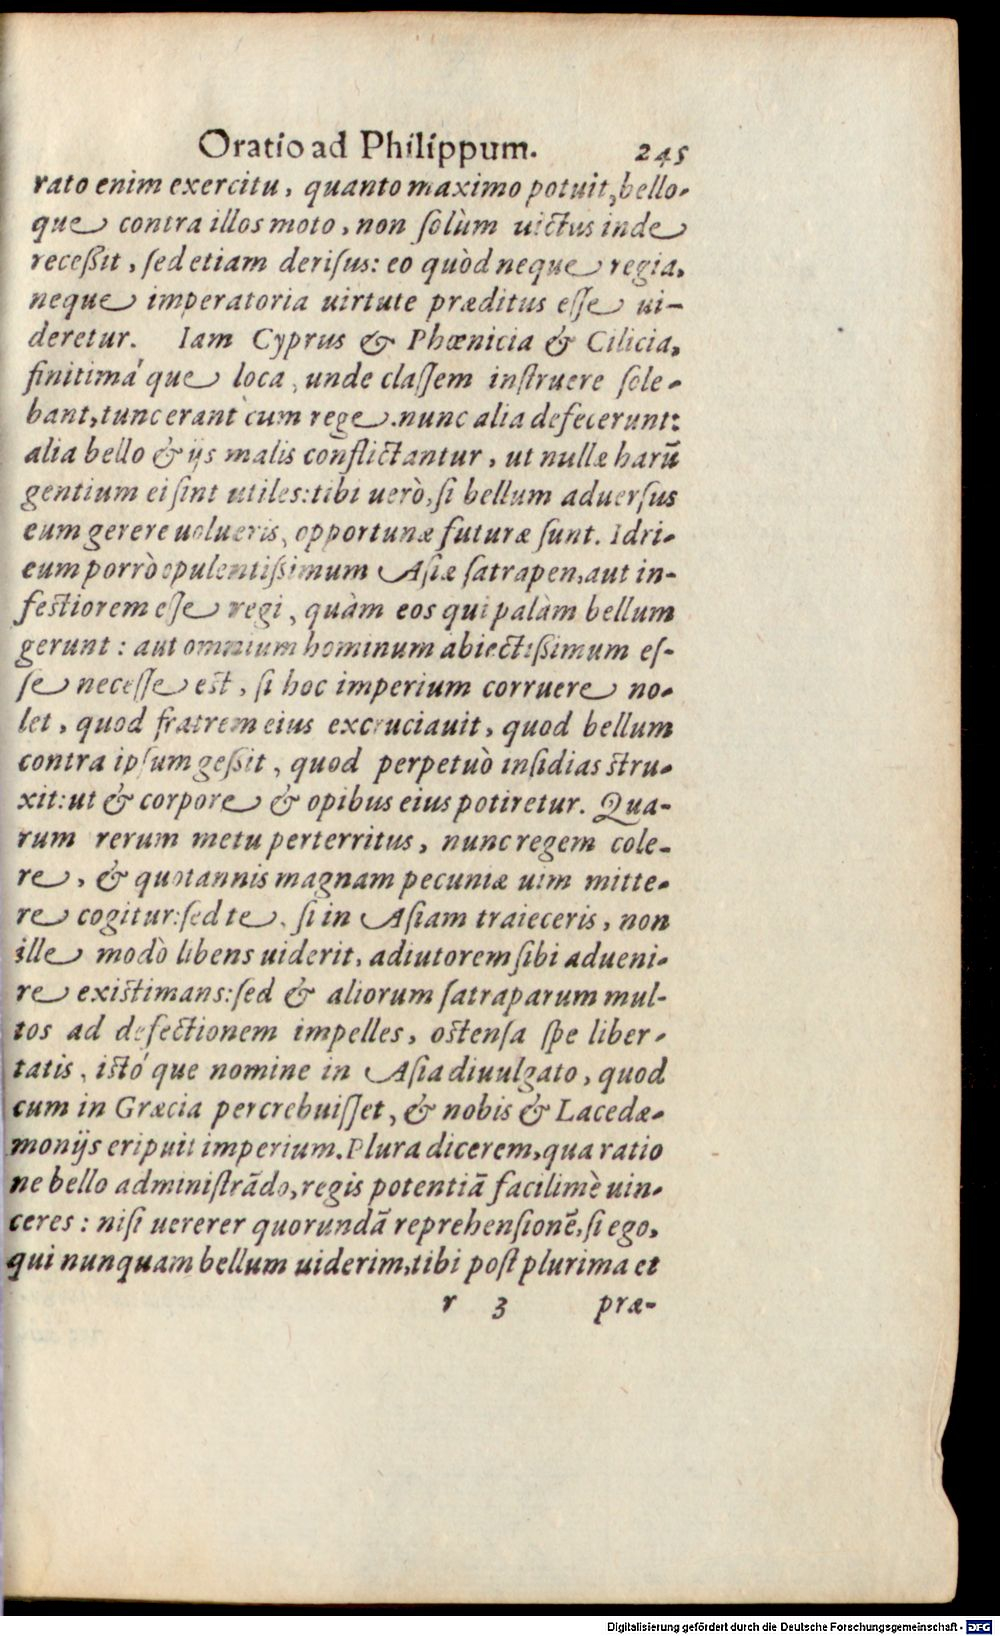 Oratio ad Philippum. 245
rato enim exercitu, quanto maximo potuit, bello-
que contra illos moto, non ſolùm uictus inde
receßit, ſed etiam deriſus: eo quòd neque regia,
neque imperatoria uirtute præditus eſſe ui-
deretur. Iam Cyprus & Phœnicia & Cilicia,
finitimá que loca, unde claſſem inſtruere ſole-
bant, tunc erant cum rege. nunc alia defecerunt:
alia bello & ijs malis conflictantur, ut nullæ harū
gentium ei ſint utiles: tibi uerò, ſi bellum aduerſus
eum gerere uolueris, opportunæ futuræ ſunt. Idri-
eum porrò opulentißimum Aſiæ ſatrapen, aut in-
feſtiorem eſſe regi, quàm eos qui palàm bellum
gerunt: aut omnium hominum abiectißimum eſ-
ſe neceſſe eſt, ſi hoc imperium corruere no-
let, quod fratrem eius excruciauit, quod bellum
contra ipſum geßit, quod perpetuò inſidias ſtru-
xit: ut & corpore & opibus eius potiretur. Qua-
rum rerum metu perterritus, nunc regem cole-
re, & quotannis magnam pecuniæ uim mitte-
re cogitur: ſed te, ſi in Aſiam traieceris, non
ille modò libens uiderit, adiutorem ſibi adueni-
re exiſtimans: ſed & aliorum ſatraparum mul-
tos ad defectionem impelles, oſtenſa ſpe liber-
tatis, iſtó que nomine in Aſia diuulgato, quod
cum in Græcia percrebuiſſet, & nobis & Lacedæ-
monijs eripuit imperium. Plura dicerem, qua ratio
ne bello adminiſtrādo, regis potentiā facilimè uin-
ceres: niſi uererer quorundā reprehenſionē, ſi ego,
qui nunquam bellum uiderim, tibi poſt plurima et
r 3 præ-
Digitalisierung gefördert durch die Deutsche Forschungsgemeinschaft - DFG